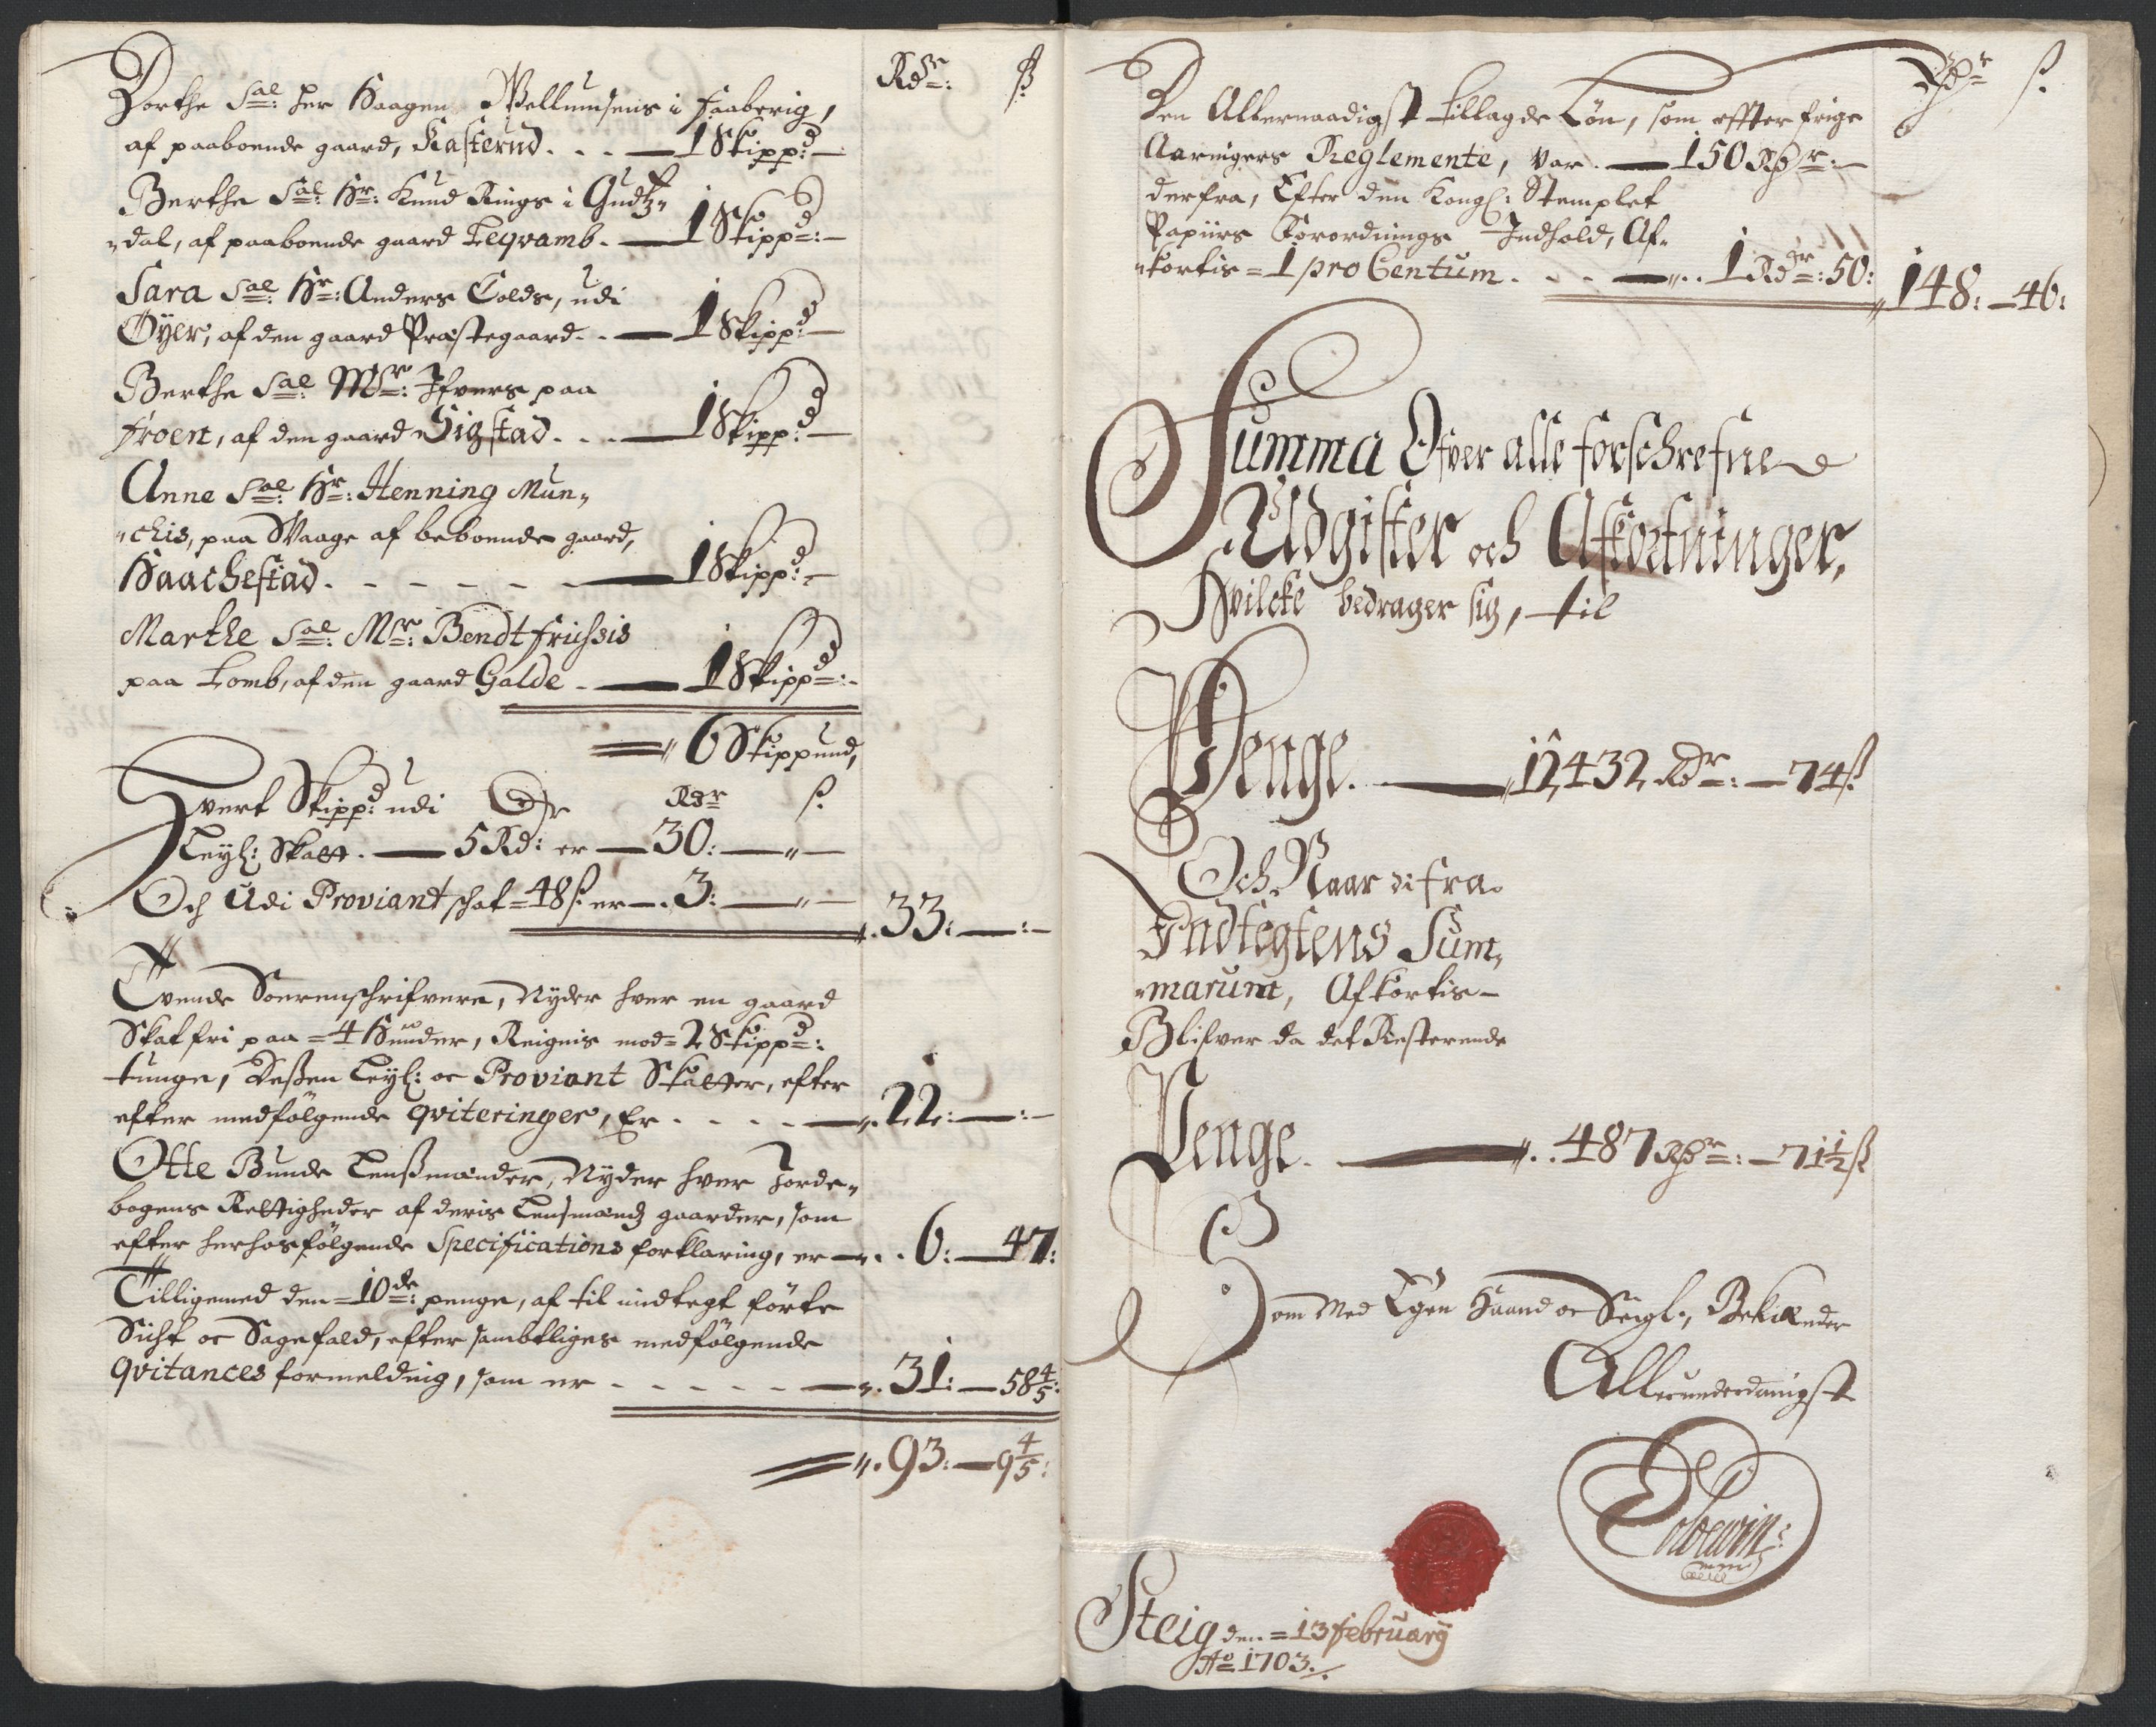 Rdr: ß
Dorthe Sal: her Haagen Mellumsens i Faaberig,
af paaboende gaard, Kasterud. . . — 1 Skippd:—
Berthe Sal: Hr: Knud Rings i Gudtz„
„dal, af paaboende gaard Leqvamb. — 1 Skippd:—
Sara Sal: Hr: Anders Colds, udi
Öÿer, af den gaard Præstegaard. . — 1 Skippd:—
Berthe Sal: Mr: Ifvers paa
Froen, af den gaard Sigstad. . . — 1 Skippd:—
Anne Sal: Hr: Henning Mun„
„chis, paa Waage af beboende gaard,
Haachestad. - - - - - — 1 Skippd:—
Marthe Sal: Mr: Bendt friihsis
paa Lomb, af den gaard Galde. — 1 Skippd:-
„6 Skippund,
Hvert Skippd: udi Er Rdr ß.
Leyl: Skatt. — 5 Rd: er — 30: — „ —
Och Udi Proviant schat = 48 ß er —. 3: — „ — „. 33: — : —
Tvende Sorenschrifvere, Nyder hver en gaard
Skatfri paa = 4 Hunder, Reignis mod = 2 Skippd:
tunge, Deßen Leyl: oc Proviant Skatter, efter
efter medfölgende qviteringer, Er . . . . —„. 22: — : —
Otte Bunde Lenßmænder, Nyder hver Jorde„
bogens Rettigheder af deris Lensmandz gaarder, som
efter herhosfölgende Specifications forklaring, er —„. . 6: — 47:
Tilligemed den = 10de: penge, af til indtegt förte
Sicht oc Sagefald, efter sambtliges medfölgende
qvitances formelding, som er - - - - - —„. 31: — 58 4/5:
„. 93: — 9 4/5:
Rdr ß.
Den Allernaadigst tillagde Lön, som effter frige
Aaringers Reglemente, var. — 150 Rdr:—
derfra, Efter den Kongl: Stemplet
Papiirs Forordnings Indhold, Af„
„kortis = 1 pro Centum. . - - —„. . 1 Rdr: 50: „148: — 46:
Summa Ofver alle forschrefne
Udgifter och Afkortninger,
Hvilcke bedrager sig, til
Penge. — „12432 Rdr: — 74 ß
Och Naar di fra
Indtegtens Sum„
„marum, Afkortis —
Blifver da det Resterende
Penge. — „. . 487 Rdr: — 71 1/2 ß
Som Med Egen Haand oc Seigl., Bekiænder
Allerunderdanigst
Steig den = 13 februarÿ
Ao 1703.